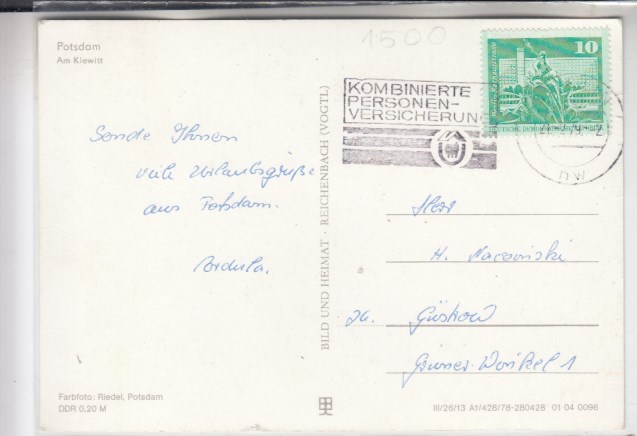 Potsdam
Am Kiewitt
1500
KOMBINIERTE
PERSONEN-
VERSICHERUNG
10
Sende Ihnen
viele Urlaubsgrüße
aus Potsdam.
BILD UND HEIMAT · REICHENBACH (VOGTL)
Herr
H.
Güstrow
Grüner Winkel 1
Farbfoto: Riedel, Potsdam
DDR 0,20 M
III/26/13 A1/428/78-280428 01 04 0096